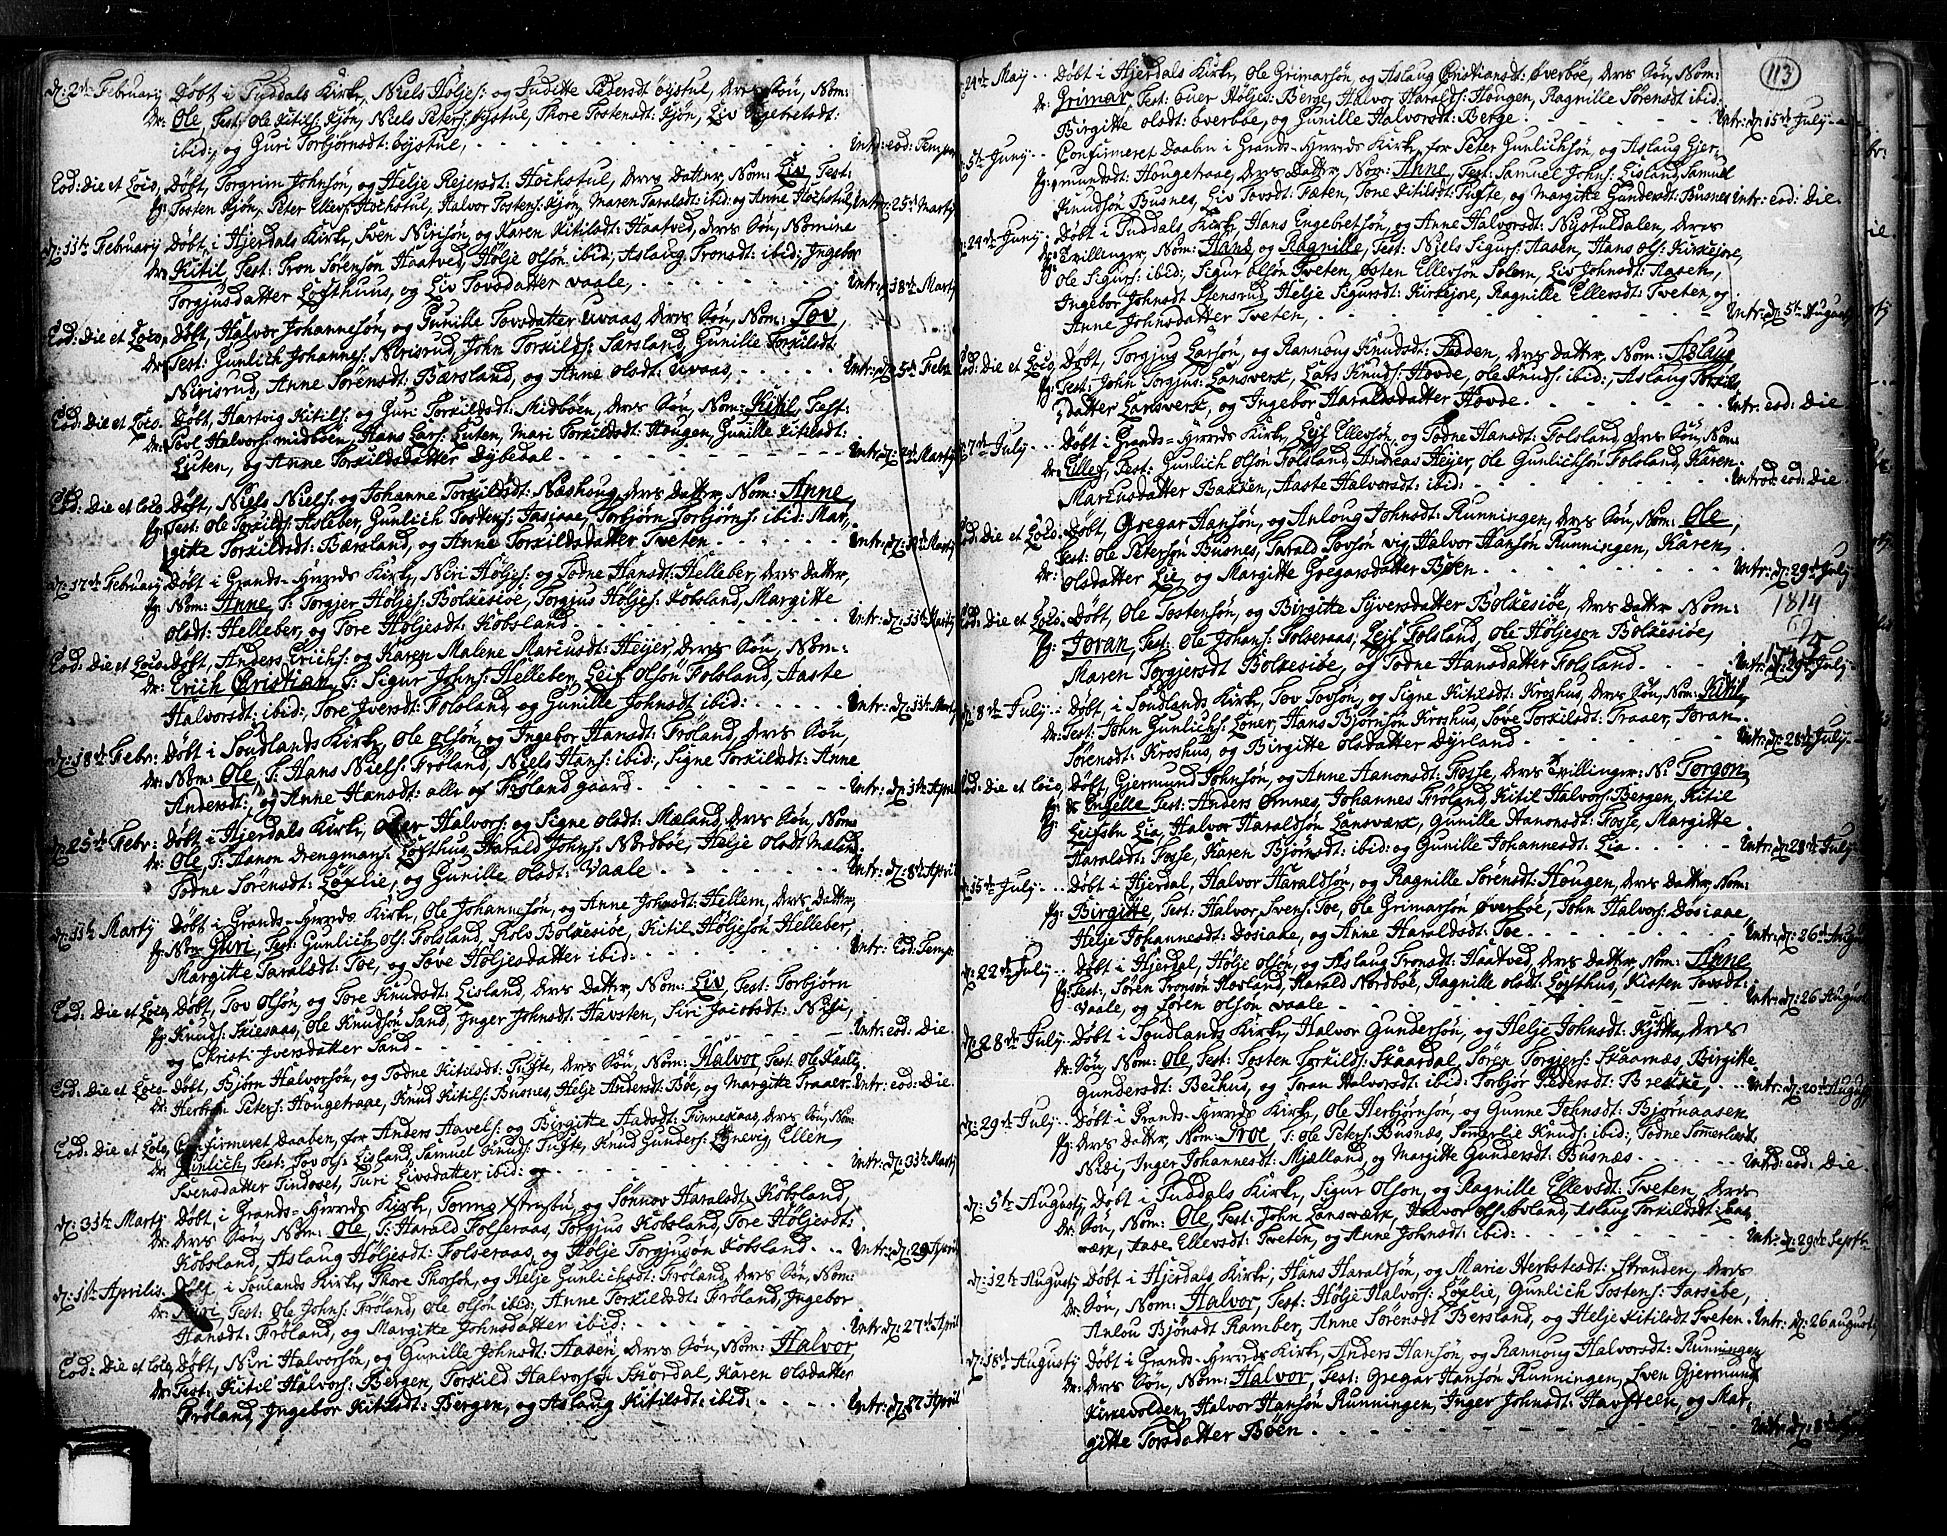 d: 2de Februarij Døbt i Tuddals Kirke, Niels Høljes: og Juditte Pedersdt: øystul, deres Søn, Nom:
dr: Ole, Test: Ole Kitils: Kjøn, Niels Peters: øystul, Thore Tostensdt: Kjøn, Liv
ibid:, og Guri Torbjørnsdt: øystul, Intr: eod: Temp:
Eod: die et Loco, Døbt, Torgrim Johnsøn, og Helje Rejersdt: Høchstul, deres Datter, Nom: Liv, Test:
pg: Tosten Kjøn, Peter Ellevs: Høchstul, Halvor Tostens: Kjøn, Maren Taralsdt: ibid: og Anne Høchstul, Intr: 25de Martij
d: 11te Februarij Døbt, i Hjerdals Kirke, Sven Nirisøn, og Karen Kitilsdt: Haatved, deres Søn, Nomine
dr: Kitil, Test: Tron Sørensøn Haatved, Hølje Olsøn ibid:, Aslaug Tronsdt: ibid:, Ingebor
Torgjusdatter Lofthuus, og Liv Tovsdatter Vaale, Intr: d: 18de Martij
Eod: die et Loco, Døbt, Halvor Johannesøn, og Gunille Tovsdatter Uvaas, deres Søn, Nom: Tov,
dr: Test: Gunlich Johannes: Nirisrud, John Torkilds: Særsland, Gunille Torkilsdt:
Nirisrud, Anne Sørensdt: Bærsland, og Anne Olsdt: Uvaas, Intr: d: 5te Febr:
Eod: die et Loco. Døbt, Hartvig Kitils: og Guri Torkildsdt: Midbøen, deres Søn, Nom: Kitil, Test:
dr: Tovl Halvors: midbøen, Hans Lars: Luten, Mari Torkildsdt: Hougen, Gunille Kitilsdt:
Luten, og Anne Torkildsdatter Dybedal Intr: d: Martij
Eod: die et loco Døbt, Niels Niels: og Johanne Torkildsdt: Nashoug, deres Datter, Nom: Anne,
pg: Test: Ole Torkilds: Asleber, Gunlich Tostens: Jasiaae, Torbjørn Torbjørns: ibid: Mar-
gitte Torkildsdt: Bærsland, og Anne Torkildsdatter Tveten Intr: d: Martij
d: 17de Februarij Døbt i Grands-Herreds Kirke, Niri Høljes: og Todne Hansdt: Helleber, deres Datter,
pg: Nom: Anne, T: Torgjer Høljes: Bolkesiøe, Torgius Høljes: Kobsland, Margitte
Olsdt: Helleber, og Tore Høljesdt: Kobsland Intr: d: 11te Martij
Eod: die et Loco. Døbt, Anders Erichs: og Karen Malene Marcusdt: Heyer, deres Søn, Nom:
dr: Erich Christian, T: Sigur Johns: Helleber, Leif Olsøn Folsland, Aaste
Halvorsdt: ibid:, Tore Iversdt: Folsland, og Gunille Johnsdt ibid: Intr: d: 11te Martij
d: 18de Febr: Døbt i Soudlands Kirke, Ole Olsøn, og Ingebor Hansdt: Frøland, deres Søn,
dr: Nom: Ole, T: Hans Niels: Frøland, Niels Hans: ibid:, Signe Torkildsdt: Anne
Andersdt:, og Anne Hansdt: alle af Frøland gaard. Intr: d: 1te April
d: 25de Febr: Døbt i Hjerdals Kirke, Halvors: og Signe Olsdt: Mæland, deres Søn, Nom:
dr: Ole, T: Hanon Drengmans: Lofthus, Harald Johns: Nordbøe, Helje Olsdt Maland
Todne Sørensdt: Løxlie, og Gunille Olsdt: Vaale Intr: d: 8de April
d: 11te Martij Døbt i Grands-Herreds Kirke, Ole Johannesøn, og Anne Johnsdt: Hellem, deres Datter,
pg: Nom: Guri, Test: Gunlich Ols: Folsland, Rolv Bolkesiøe, Kitil Høljesøn Helleber,
Margitte Taralsdt: Toe, og Søve Høljesdatter ibid: Intr: Eod: Temp:
Eod: die et Loco, Døbt, Tov Olsøn, og Tore Knudsdt: Lisland, deres Datter, Nom: Liv, Test: Torbjørn
pg: Knuds: Skiesaas, Ole Knudsøn Sand, Inger Johnsdt: Havsten, Siri Jacobsdt: Nisi,
og Christi Iversdatter Sand Intr: eod: Die
Eod: die et Loco. Døbt, Bjørn Halvorsøn, og Todne Kitilsdt: Tufte, deres Søn, Nom: Halvor, Test: Ole
dr: Herbrau Peters: Hougetraae, Knud Kitils: Busnes, Helje Andersdt: Bøe, og Margitte Traaer. Intr: eod: Die.
Eod: Die et Loco, Confirmeret Daaben, for Anders Aavels: og Birgitte Aadsdt: Tinnekaas, deres Søn, Nom:
dr: Gunlich, Test: Tov Ols: Lisland, Samuel Knuds: Tufte, Knud Gunders: Lynevig, Ellen
Svensdatter Tindoset, Turi Livsdatter ibid: Intr: d: 31te Martij
d: 31te Martij Døbt, i Grands-Herreds Kirke, Tormo og Sønnov Haralsdt: Kobsland,
dr: deres Søn, Nom: Ole, T: Harald Folseraas, Torgjus Kobsland, Tore Høljesdt:
Kobsland, Aslaug Høljesdt: Folseraas, og Hølje Torgjusøn Kobsland Intr: d: 29 April
d: 16te Aprilis. Døbt, i Soulands Kirke, Thore Thorsøn, og Helje Gunlichsdt: Frøland, deres Søn, Nom:
dr: Test: Ole Johns: Frøland, Ole Olsøn ibid:, Anne Torkildsdt: Frøland, Ingebor
Hansdt: Frøland, og Margitte Johnsdatter ibid: Intr: d: 27de April
Eod: die et loco, Døbt, Niri Halvorsøn, og Gunille Johnsdt: Aasen, deres Søn, Nom: Halvor
dr: Test: Kitil Halvors: Bergen, Torkild Halvors: Skordal, Karen Olsdatter
Frøland, Ingebor Kitilsdt: Bergen, og Aslaug Kitilsdt: ibid: Intr: d: 27 April
113
24de Maij Døbt i Hjerdals Kirke, Ole Grimarsøn, og Aslaug Christiansdt: øverbøe, deres Søn, Nom:
dr: Grimar, Test: Ouer Høljes: Berge, Halvor Haralds: Hougen, Ragnille Sørensdt ibid:
Birgitte Olsdt: øverbøe, og Gunille Halvorsdt: Berge. Intr: d: 15de July
5te Junij Confirmeret Daaben i Grands-Herreds Kirke, for Peter Gunlichsøn, og Aslaug Gjer-
pg: mundsdt: Hougetraae, deres Datter, Nom: Anne, Test: Samuel Johns: Lisland, Samuel
Knudsøn Busnes, Liv Tovsdt: Fæten, Tone Kitilsdt: Tufte, og Margitte Gundersdt: Busnes Intr: eod: die.
24de Junij Døbt i Tuddals Kirke, Hans Engebretsøn, og Anne Halvorsdt: Nystuldalen, deres
Tvillinger, Nom: Hans, og Ragnille, Test: Niels Sigurs: Aasen, Hans Ols: Kirkejore,
Ole Sigurs: ibid:, Sigur Olsøn Tveten, Østen Ellevsøn Solem, Liv Johnsdt: Aasen,
Ingebor Johnsdt Stensrud, Helje Sigursdt: Kirkejore, Ragnille Ellevsdt: Tveten, og
Anne Johnsdatter Tveten, Intr: d: 5te August
Eod: die et Loco, Døbt, Torgjus Larsøn, og Rannoug Knudsdt: Fadden, deres datter, Nom: Aslaug
pg: Test: John Torgjus: Lansverk, Lars Knuds: Hovde, Ole Knuds: ibid:, Aslaug Torkils-
datter Lansverk, og Ingebor Haraldsdatter Hovde Intr: eod: die
7de July Døbt i Grands-Herreds Kirke, Leif Ellevsøn, og Todne Hansdt: Folsland, deres Søn, Nom:
dr: Ellef, Test: Gunlich Olsøn Folsland, Andreas Heyer, Ole Gunlichsøn Folsland, Karen
Marcusdatter Bakken, Aaste Halvorsdt: ibid: Introd: eod: die
Eod: die et Loco. Døbt, Gregar Hansøn, og Anloug Johnsdt: Runningen, deres Søn, Nom: Ole,
dr: Test: Ole Petersøn Busnes, Tarald Tovsøn vig, Halvor Hansøn Runningen, Karen
Olsdatter Lie, og Margitte Gregarsdatter Bøen Intr: d: 29de July
Eod: die et Loco. Døbt, Ole Tostensøn, og Birgitte Syversdatter Bolkesiøe, deres Datter Nom:
pg: Joran, Test: Ole Johans: Folseraas, Leif Folsland, Ole Høljesøn Bolkesiøe,
1814
69
1745
Maren Torgjersdt Bolkesiøe, og Todne Hansdatter Folsland Intr: d: 29de July
8de July Døbt, i Soudlands Kirke, Tov Tovsøn, og Signe Kitilsdt: Kroshus, deres Søn, Nom: Kitil,
dr: Test: John Gunlichs: Loner, Hans Bjørnsøn Kroshus, Søve Torkilsdt: Traaer, Joran
Sørensdt: Kroshus, og Birgitte Olsdatter Dyrland Intr: d: 28de July
Eod: die et loco, Døbt, Gjermund Johnsøn, og Anne Hanonsdt: Fosse, deres Tvillinger: N: Torgon,
pg: & Engelle, Test: Anders Ornnes, Johannes Frøland, Kitil Halvors: Bergen, Kitil
pg: Leifsøn Lia, Halvor Haraldsøn Lansværk, Gunille Hanonsdt: Fosse, Margitte
Haralsdt: Fosse, Karen Bjørnsdt: ibid: og Gunille Johannesdt: Lia Intr: d: 28de July
15de July Døbt i Hjerdal, Halvor Haraldsøn, og Ragnille Sørensdt: Hougen, deres Datter, Nom:
pg: Birgitte, Test: Halvor Svens: Toe, Ole Grimarsøn øverbøe, John Halvors: Dosiaae
Helje Johannesdt: Dosiaae, og Anne Haraldsdt: Toe Intr: d: 26de August
d: 22de July Døbt i Hjerdal, Hølje Olsøn, og Aslaug Tronsdt: Haatved, deres Datter, Nom: Anne
pg: Test:, Søren Tronsøn Hovland, Harald Nordbøe, Ragnille Olsdt: Lofthus, Kisten Tovsdt:
Vaale, og Søren Olsøn Vaale Intr: d: 26 Augustij
d: 28de July Døbt i Soudlands Kirke, Halvor Gundersøn, og Helje Johnsdt: Kyotte, deres
dr: Søn, Nom: Ole, Test: Tosten Torkilds: Skaardal, Søren Torgjers: Skaarnæs, Birgitte
Gundersdt: Bedhus, og Joran Halvorsdt: ibid: Torbjør Pedersdt: Brekke, Intr: d: 20de Augustij
d: 29de July Døbt i Grands-Herreds Kirke, Ole Herbjørnsøn, og Gunne Johnsdt: Bjørnaasen
pg: deres Datter, Nom: Proe, T: Ole Peters: Busnæs, Somerlie Knuds: ibid:, Todne Somerliesdt
Nisi, Inger Johannesdt: Mjælland, og Margitte Gundersdt: Busnæs Intrd: eod: Die
d: 5te Augustij Døbt i Tuddals Kirke, Sigur Olsøn, og Ragnille Ellevsdt: Tveten, deres
dr: Søn, Nom: Ole, Test: John Lansværk, Halvor Ols: Øvland, Aslaug Torkilsdt: Lans-
værk, Aase Ellevsdt: Tveten, og Anne Johnsdt: ibid: Intr: d: 29de Septbr:
d: 12te Augustij Døbt i Hjerdals Kirke, Hans Haraldsøn, og Maria Herkstesdt: Stranden, deres
dr: Søn, Nom: Halvor, Test: Hølje Halvors: Løxlie, Gunlich Tostens: Jarsibe,
Anlou Bjønsdt Ramber, Anne Sørensdt: Bersland, og Helje Kitilsdt Tveten Intr: d: 26 augustij
d: 18de Augustij Døbt i Grands-Herreds Kirke, Anders Hansøn, og Rannoug Halvorsdt: Runningen,
dr: deres Søn, Nom: Halvor, Test: Gregar Hansøn Runningen, Sven Gjermund
Kirkevolden, Halvor Hansøn Runningen, Inger Johnsdt: Havsteen, og Mar-
gitte Torsdatter Bøen Intr: d: 8de